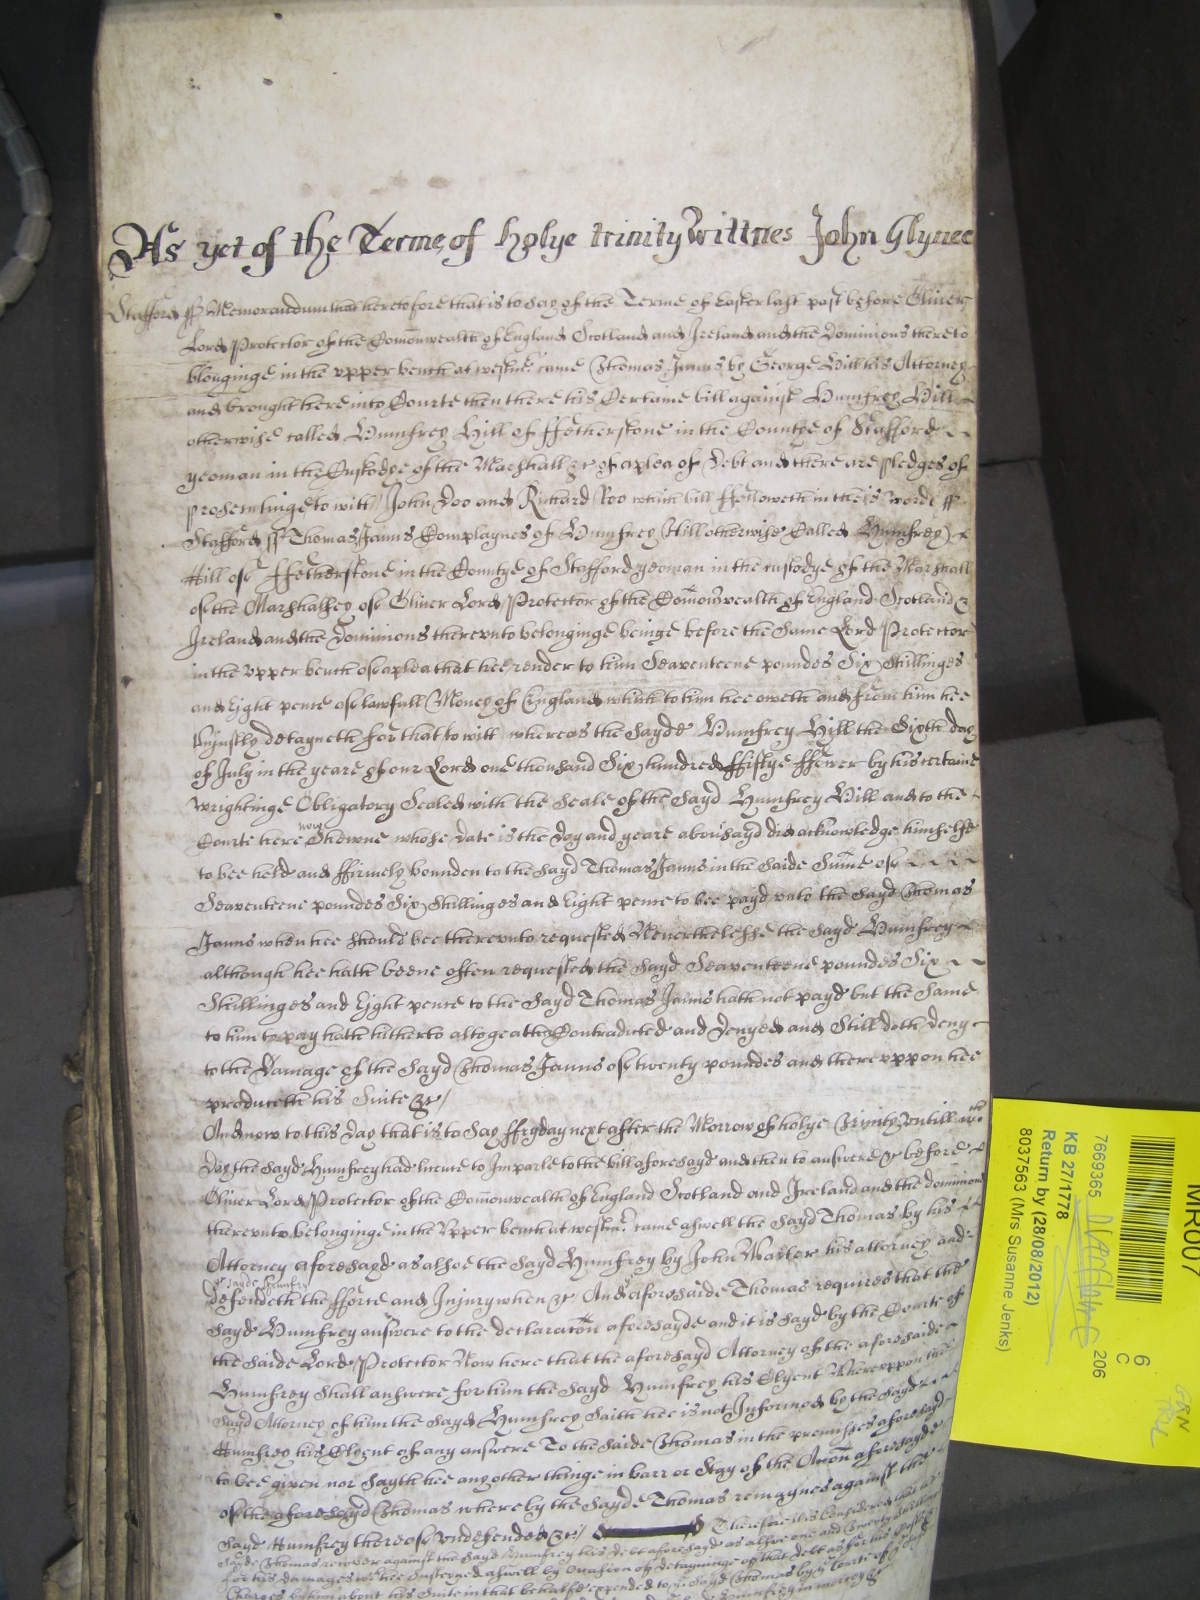 As yet of the Terme of holye trinity Wittnes John Glynee
Stafford ss Memorandum that heretofore that is to say of the Terme of Easter last past before Oliver
Lord Protector of the Comōnwealth of England Scotland and Ireland and the Dominions thereto
blonginge in the vpper bench at westmr. came Thomas Janns by George Hill his Attorney
and brought here into Courte then there his Certaine bill against Humfrey Hill
otherwise called Humfrey Hill of ffetherstone in the Countye of Stafford
yeoman in the Custodye of the Marshall &c of a plea of Debt and there are pledges of
prosecutinge to witt John Doo and Richard Roo which bill ffolloweth in theis words ss
Stafford ss Thomas Janns Complaynes of Humfrey Hill otherwise Called Humfrey
Hill of ffetherstone in the Countye of Stafford yeoman in the custodye of the Marshall
of the Marshalsey of Oliver Lord Protector of the Comōnwealth of England Scotland &
Ireland and the Dominions therevnto belonginge beinge before the same Lord Protector
in the vpper bench of a plea that hee render to him Seaventeene poundes Six Shillinges
and Eight pence of lawfull Money of England which to him hee oweth and from him hee
Vnjustly detayneth for that to witt whereas the Sayde Humfrey Hill the Sixth day
of July in the yeare of our Lord one thousand Six hundred ffiftye ffower by his certaine
Wrightinge Obligatory Sealed with the Seale of the Sayd Humfrey Hill and to the
Courte here now Shewne whose date is the day and yeare abovesayd did acknowledge himselfe
to bee held and ffirmely bounden to the Sayd Thomas Janns in the Saide Sum̄e of
Seaventeene poundes Six Shillinges and Eight pence to bee payd vnto the Sayd Thomas
Janns when hee should bee therevnto requested Neverthelesse the Sayd Humfrey
although hee hath beene often requested the Sayd Seaventeene poundes Six
Shillinges and Eight pence to the Sayd Thomas Janns hath not payd but the Same
to him to pay hath hitherto altogeather Contradicted and denyed and Still doth deny
to the Damage of the Sayd Thomas Janns of twenty poundes and therevppon hee
produceth his Suite &c
And now to this day that is to Say ffryday next after the Morrow of holye Trinity Vntill wch
day the Sayd Humfrey had licence to Imparle to the bill aforesayd and then to answere &c before
Oliver Lord Protector of the Comōnwealth of England Scotland and Ireland and the dominions
therevnto belonginge in the Vpper bench at westmr. came aswell the Sayd Thomas by his
Attorney aforesayd as alsoe the Sayd Humfrey by John his attorney and
ye sayde Humfrey
defendeth the fforce and Injury when &c And ye aforesaide Thomas requires that the
Sayd Humfrey answere to the declaracōn aforesayde and it is Sayd by the Courte of
the Saide Lord Protector Now here that the aforesayd Attorney of the aforesaide
Humfrey Shall answere for him the Sayd Humfrey his Clyent Wherevppon the
Sayd Attorney of him the Sayd Humfrey Saith hee is not Informed by the Sayd
Humfrey his Clyent of any answere To the Saide Thomas in the premisses aforesayd
to bee given nor Sayth hee any other thinge in barr or Stay of the Accōn aforesayde
of the aforesayd Thomas whereby the Sayde Thomas remaynes against the
Sayd Humfrey thereof vndefended &c Therefore It is Considered that the
Sayde Thomas recover against the Sayd Humfrey his debt aforesayd as alsoe one and twenty shillings
for his damages wch hee Susteyned aswell by Occasion of detayninge of that debt as for his Costs &
Charges by him about his Suite in that behalfe expended to ye Sayd Thomas by ye Courte
Humfrey in mercy &c
MR007
7669365
206
6
C
KB 27/1778
Return by (28/08/2012)
8037563 (Mrs Susanne Jenks)